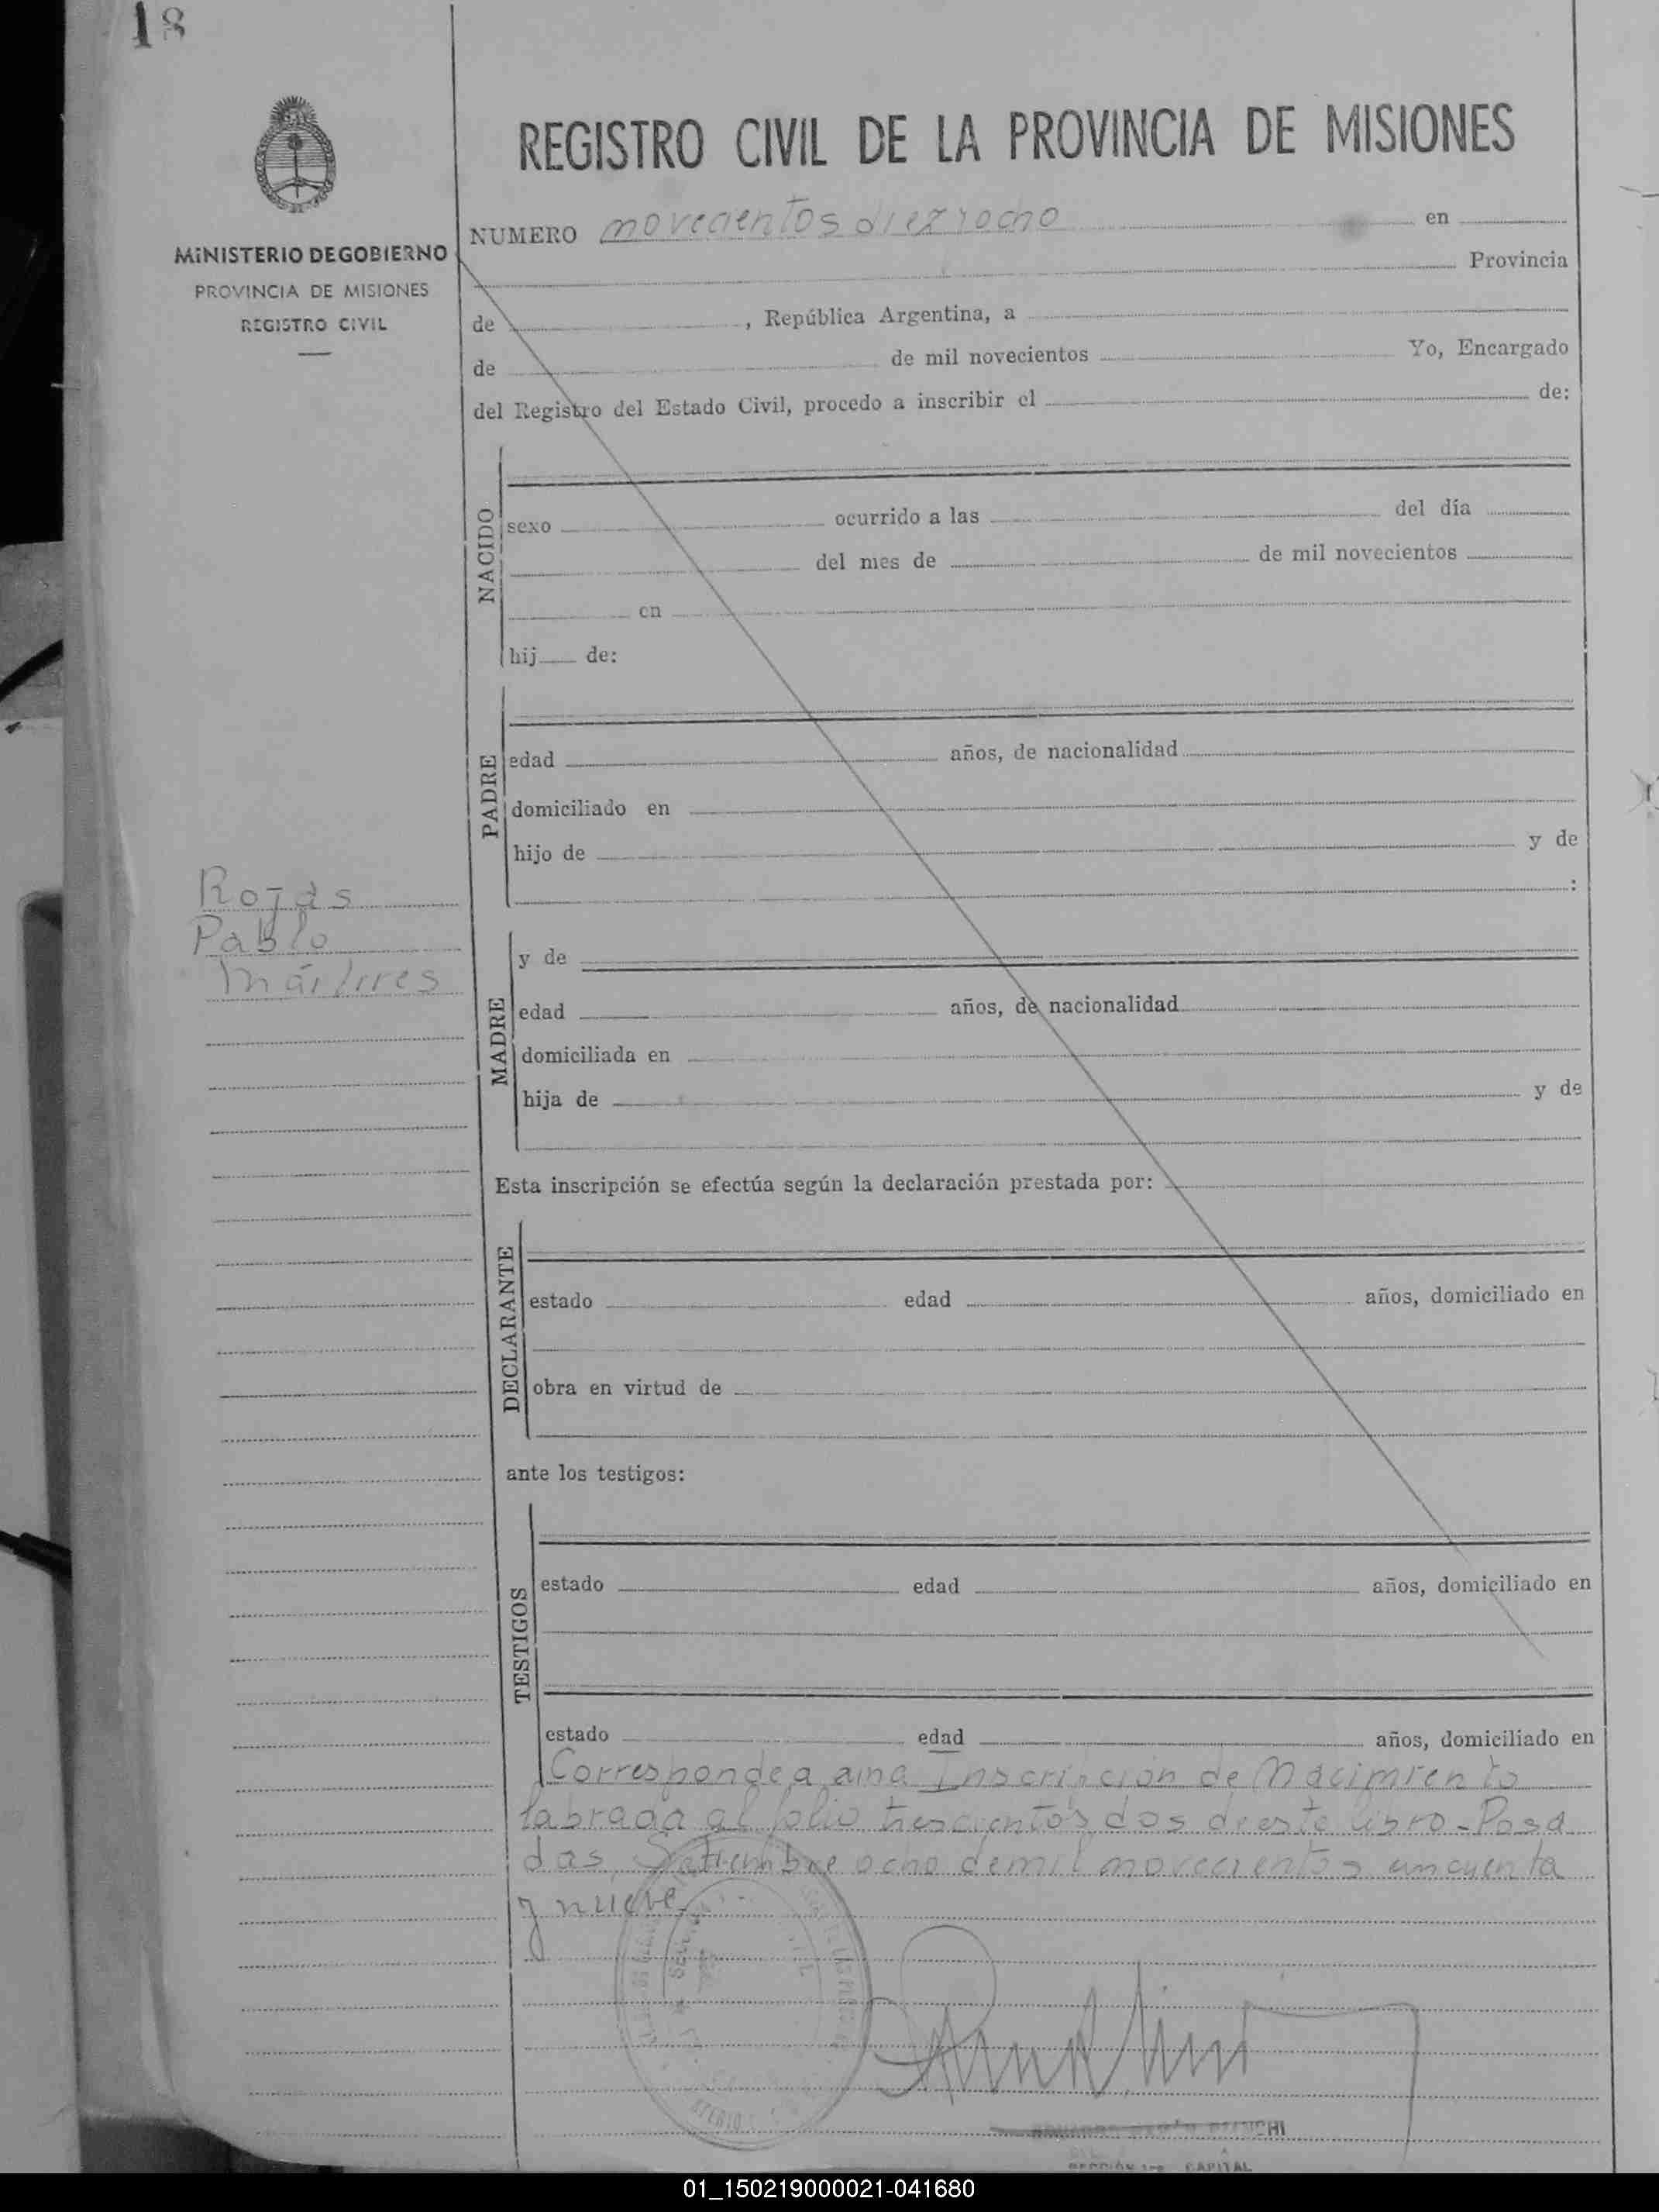 18
REGISTRO CIVIL DE LA PROVINCIA DE MISIONES
MINISTERIO DE GOBIERNO
PROVINCIA DE MISIONES
REGISTRO CIVIL
NUMERO novecientos diez y ocho en
Provincia
de , República Argentina, a
de de mil novecientos Yo, Encargado
del Registro del Estado Civil, procedo a inscribir el de:
NACIDO
sexo ocurrido a las del día
del mes de de mil novecientos
en
hij de:
PADRE
edad años, de nacionalidad
domiciliado en
hijo de y de
:
Rojas
Pablo
Mártires
MADRE
y de
edad años, de nacionalidad
domiciliada en
hija de y de
Esta inscripción se efectúa según la declaración prestada por:
DECLARANTE
estado edad años, domiciliado en
obra en virtud de
ante los testigos:
TESTIGOS
estado edad años, domiciliado en
estado edad años, domiciliado en
Corresponde a una Inscripción de Nacimiento
labrada al folio trescientos dos de este libro - Posa
das Setiembre ocho de mil novecientos cincuenta
y nueve
BIANCHI
CAPITAL
01_150219000021-041680